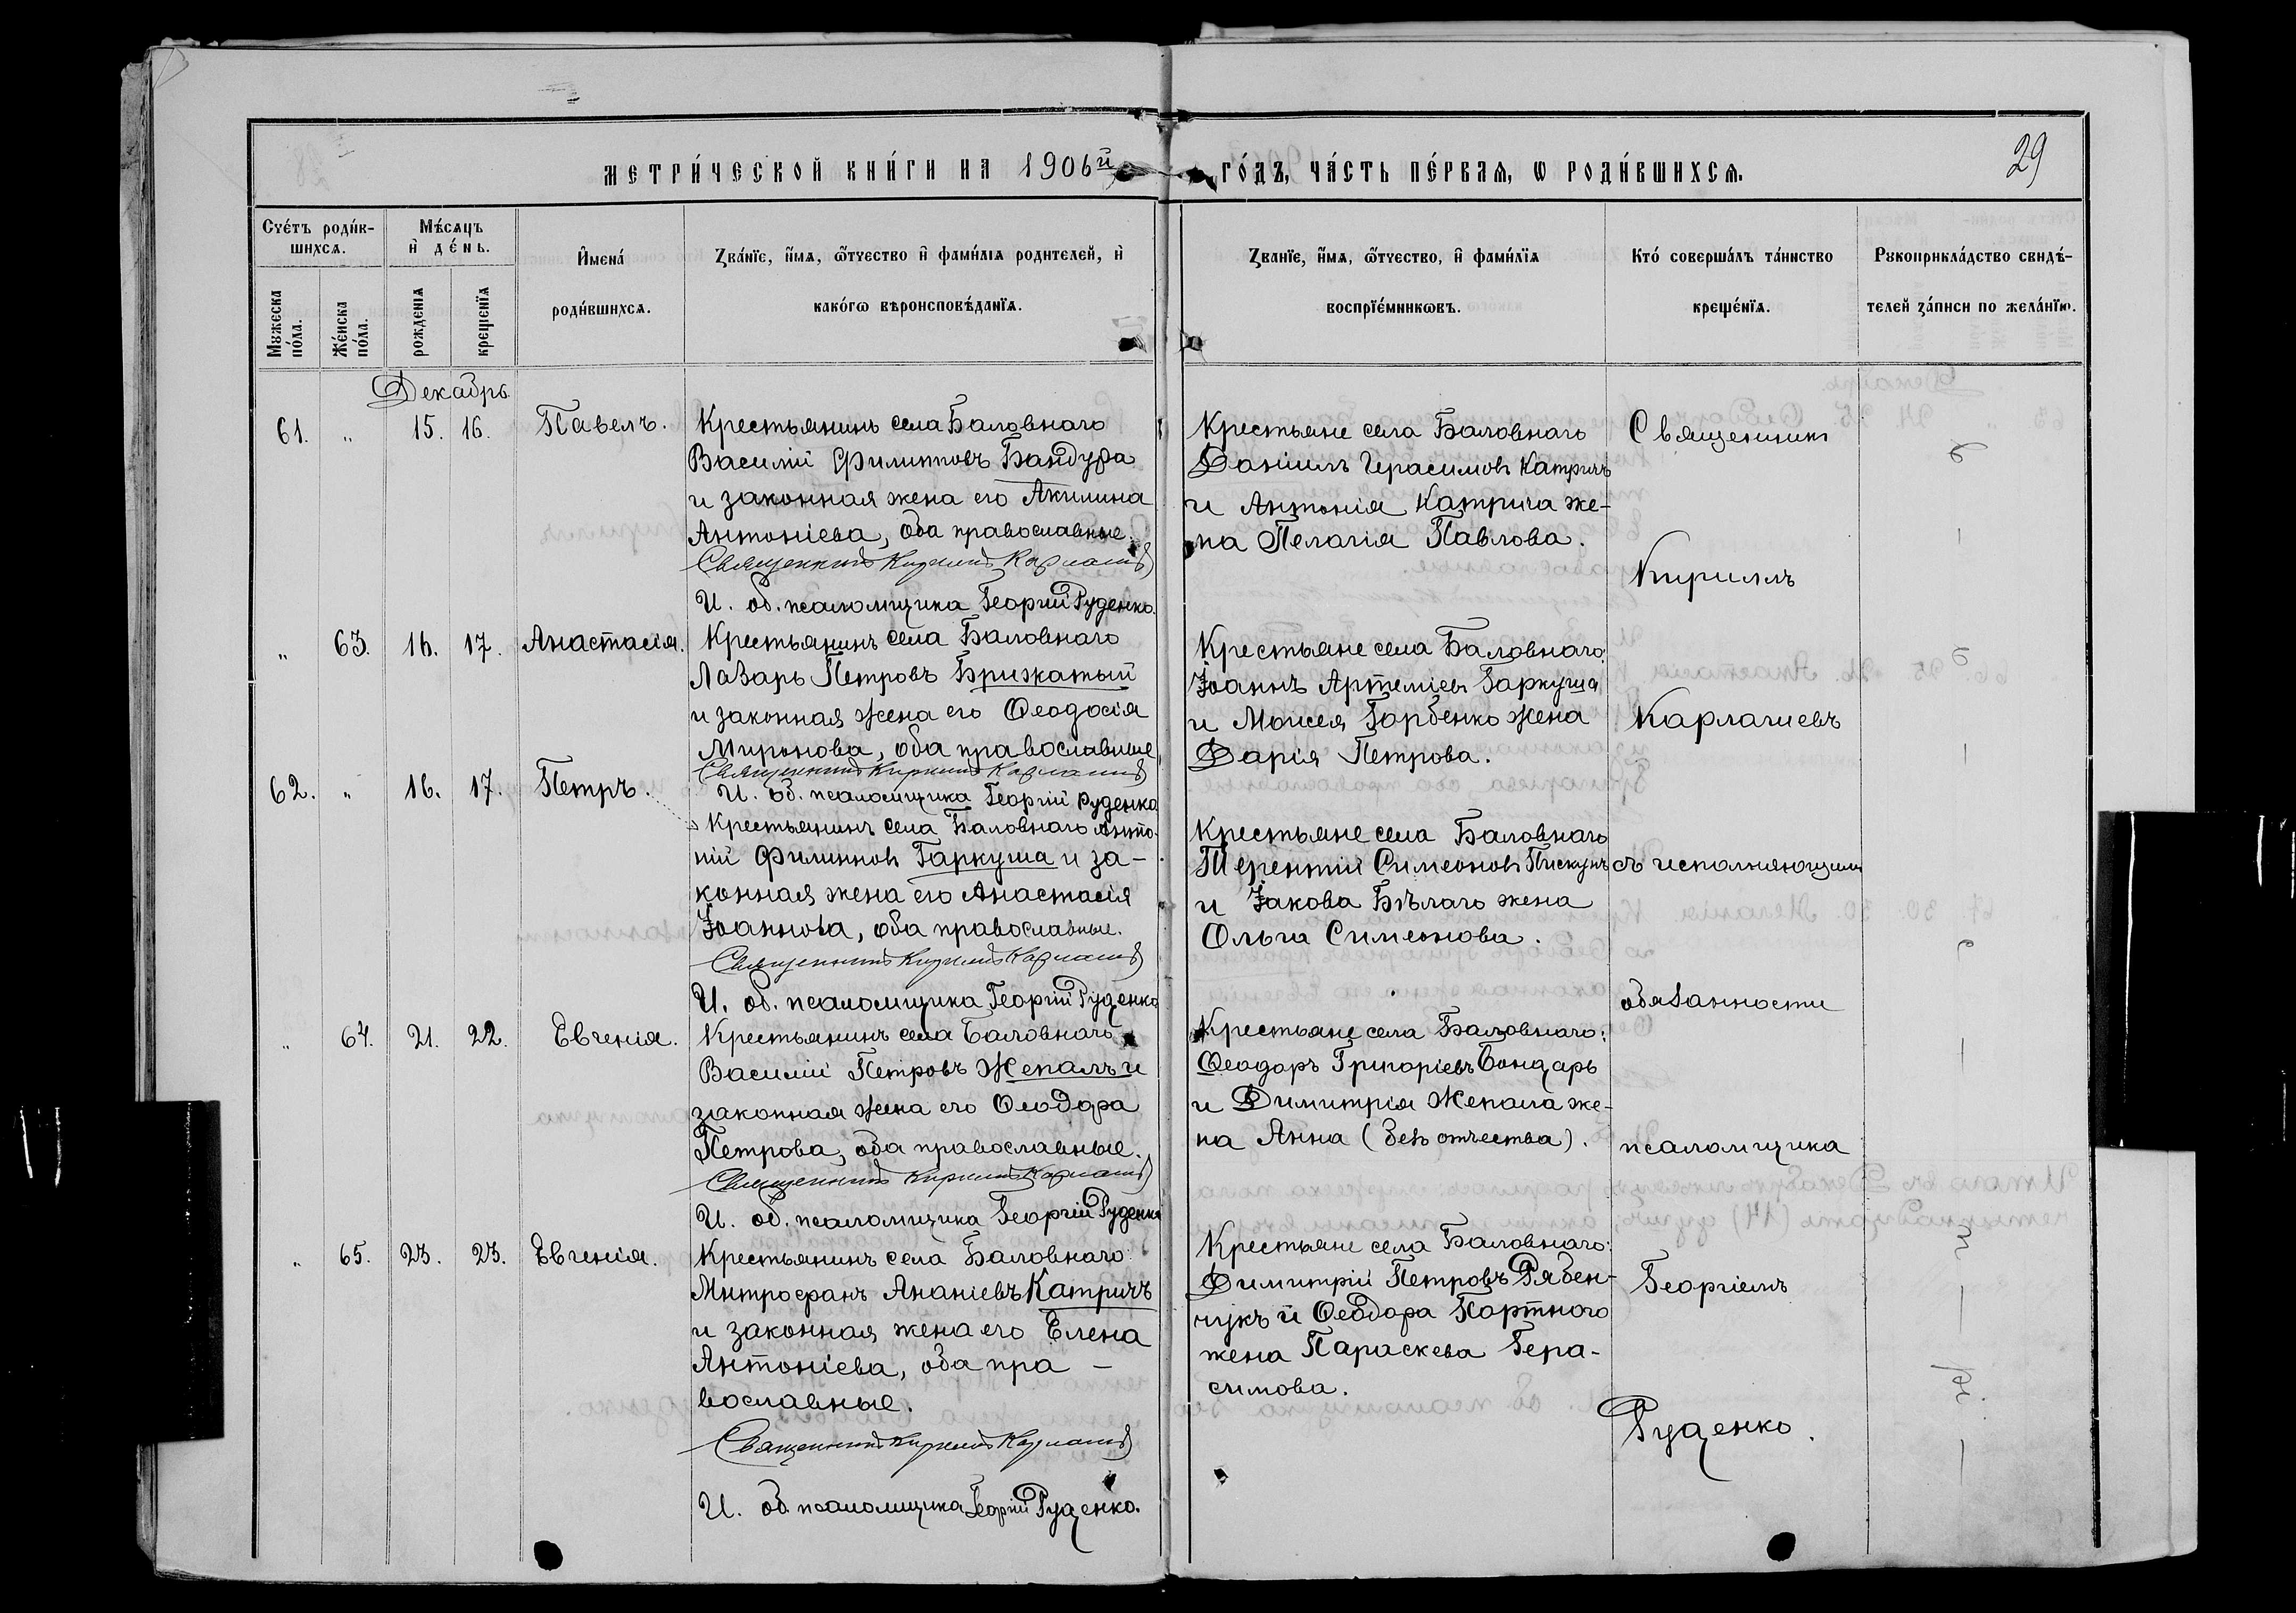 метри́ческой кни́ги на 1906й го́дъ, ча́сть пе́рваѧ, ѡ роди́вшихсѧ.
29
Сче́тъ роди́в-
шихсѧ.
Мꙋжеска по́ла.
Же́нска по́ла.
Мѣ́сѧцъ
и҆ де́нь.
рожденїѧ
крещенїѧ
И҆мена́
роди́вшихсѧ.
Ꙁва́нїе, и҆́мѧ, ѻ҆́тчество и҆ фами́лїѧ родителей, и҆
како́гѡ вѣроисповѣ́данїѧ.
Ꙁванїе, и҆́мѧ, ѻ҆́тчество, и҆ фами́лїѧ
воспрїе́мникѡвъ.
Кто́ соверша́лъ та́инство
креще́нїѧ.
Рꙋкоприкла́дство свидѣ́-
телей ꙁа́писи по жела́нїю.
Декабрь
61. „ 15. 16. Павелъ.
Крестьянинъ села Баловнаго
Василій Филипповъ Бандура
и законная жена его Акилина
Антоніева, оба православные.
Священникъ Кириллъ Карпачевъ
И. об. псаломщика Георгій Руденко.
Крестьяне села Баловнаго
Даніилъ Герасимовъ Катричъ
и Антонія Катрича же-
на Пелагія Павлова.
„ 63. 16. 17. Анастасія.
Крестьянинъ села Баловнаго
Лазарь Петровъ Брижатый
и законная жена его Ѳеодосія
Миронова, оба православные
Священникъ Кириллъ
И. об. псаломщика Георгій Руденко
Крестьяне села Баловнаго:
Іоаннъ Артеміевъ Гаркуша
и Моисея Горбенко жена
Дарія Петрова.
62. „ 16. 17. Петръ.
Крестьянинъ села Баловнаго Анто-
ній Филипповъ Гаркуша и за-
конная жена его Анастасія
Іоаннова, оба православные.
Священникъ Кириллъ
И. об. псаломщика Георгій Руденко
Крестьяне села Баловнаго
Терентій Симеоновъ Пискунъ
и Іакова Бѣлаго жена
Ольга Симеонова.
„ 64. 21. 22. Евгенія.
Крестьянинъ села Баловнаго
Василій Петровъ Жепалъ и
законная жена его Ѳеодора
Петрова, оба православные.
Священникъ Кириллъ
И. об. псаломщика Георгій Руденко
Крестьяне села Баловнаго:
Ѳеодоръ Григоріевъ Бондарь
и Димитрія Жепала же-
на Анна (безъ отчества).
„ 65. 23. 23. Евгенія.
Крестьянинъ села Баловнаго
Митрофанъ Ананіевъ Катричъ
и законная жена его Елена
Антоніева, оба пра-
вославные.
Священникъ Кириллъ
И. об. псаломщика Георгій Руденко.
Крестьяне села Баловнаго:
Димитрій Петровъ Рябен-
чукъ и Ѳеодора Портного
жена Параскева Гера-
симова.
Священникъ
Кириллъ
съ исполняющимъ
обязанности
псаломщика
Георгіемъ
Руденко.